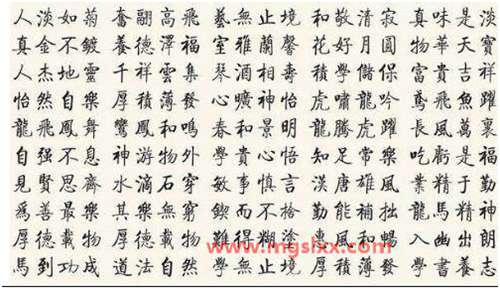 人淡如菊 奮翮高飛 藝無止境 和敬清寂 真味是淡
真金不鍍 養德澤福 室雅蘭馨 花好月圓 物華天寶
人杰地靈 千祥雲集 琴酒相壽 學儲保 富貴吉祥
怡然自樂 厚積薄發 曠神怡 虎嘯龍吟 鳶飛魚躍
龍飛鳳舞 鸞鳳和鳴 春和景明 龍騰虎躍 長風萬裏
自强不息 神游物外 學貴心悟 知足常樂 吃虧是福
見賢思齊 水滴石穿 敏事慎言 漢唐雄風 業精于勤
爲善最樂 其樂無窮 鍥而不捨 勤能補拙 龍馬精神
厚德載物 厚德載物 難得糊塗 惠風和暢 入幽出朗
www.mgslxx.com
馬到功成 道法自然 學無止境 厚積薄發 學書養志